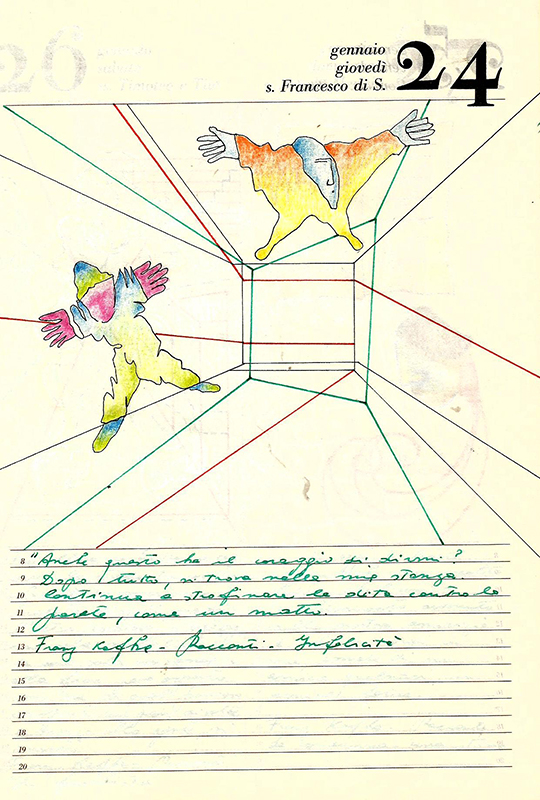 gennaio
giovedì
s. Francesco di S.
24
8 "Anche questo ha il coraggio di dirmi?
9 Dopo tutto, si trova nella mia stanza.
10 Continua a strofinare le dita contro la
11 parete, come un matto.
12
13 Franz Kafka - Racconti - Infelicità
14
15
16
17
18
19
20